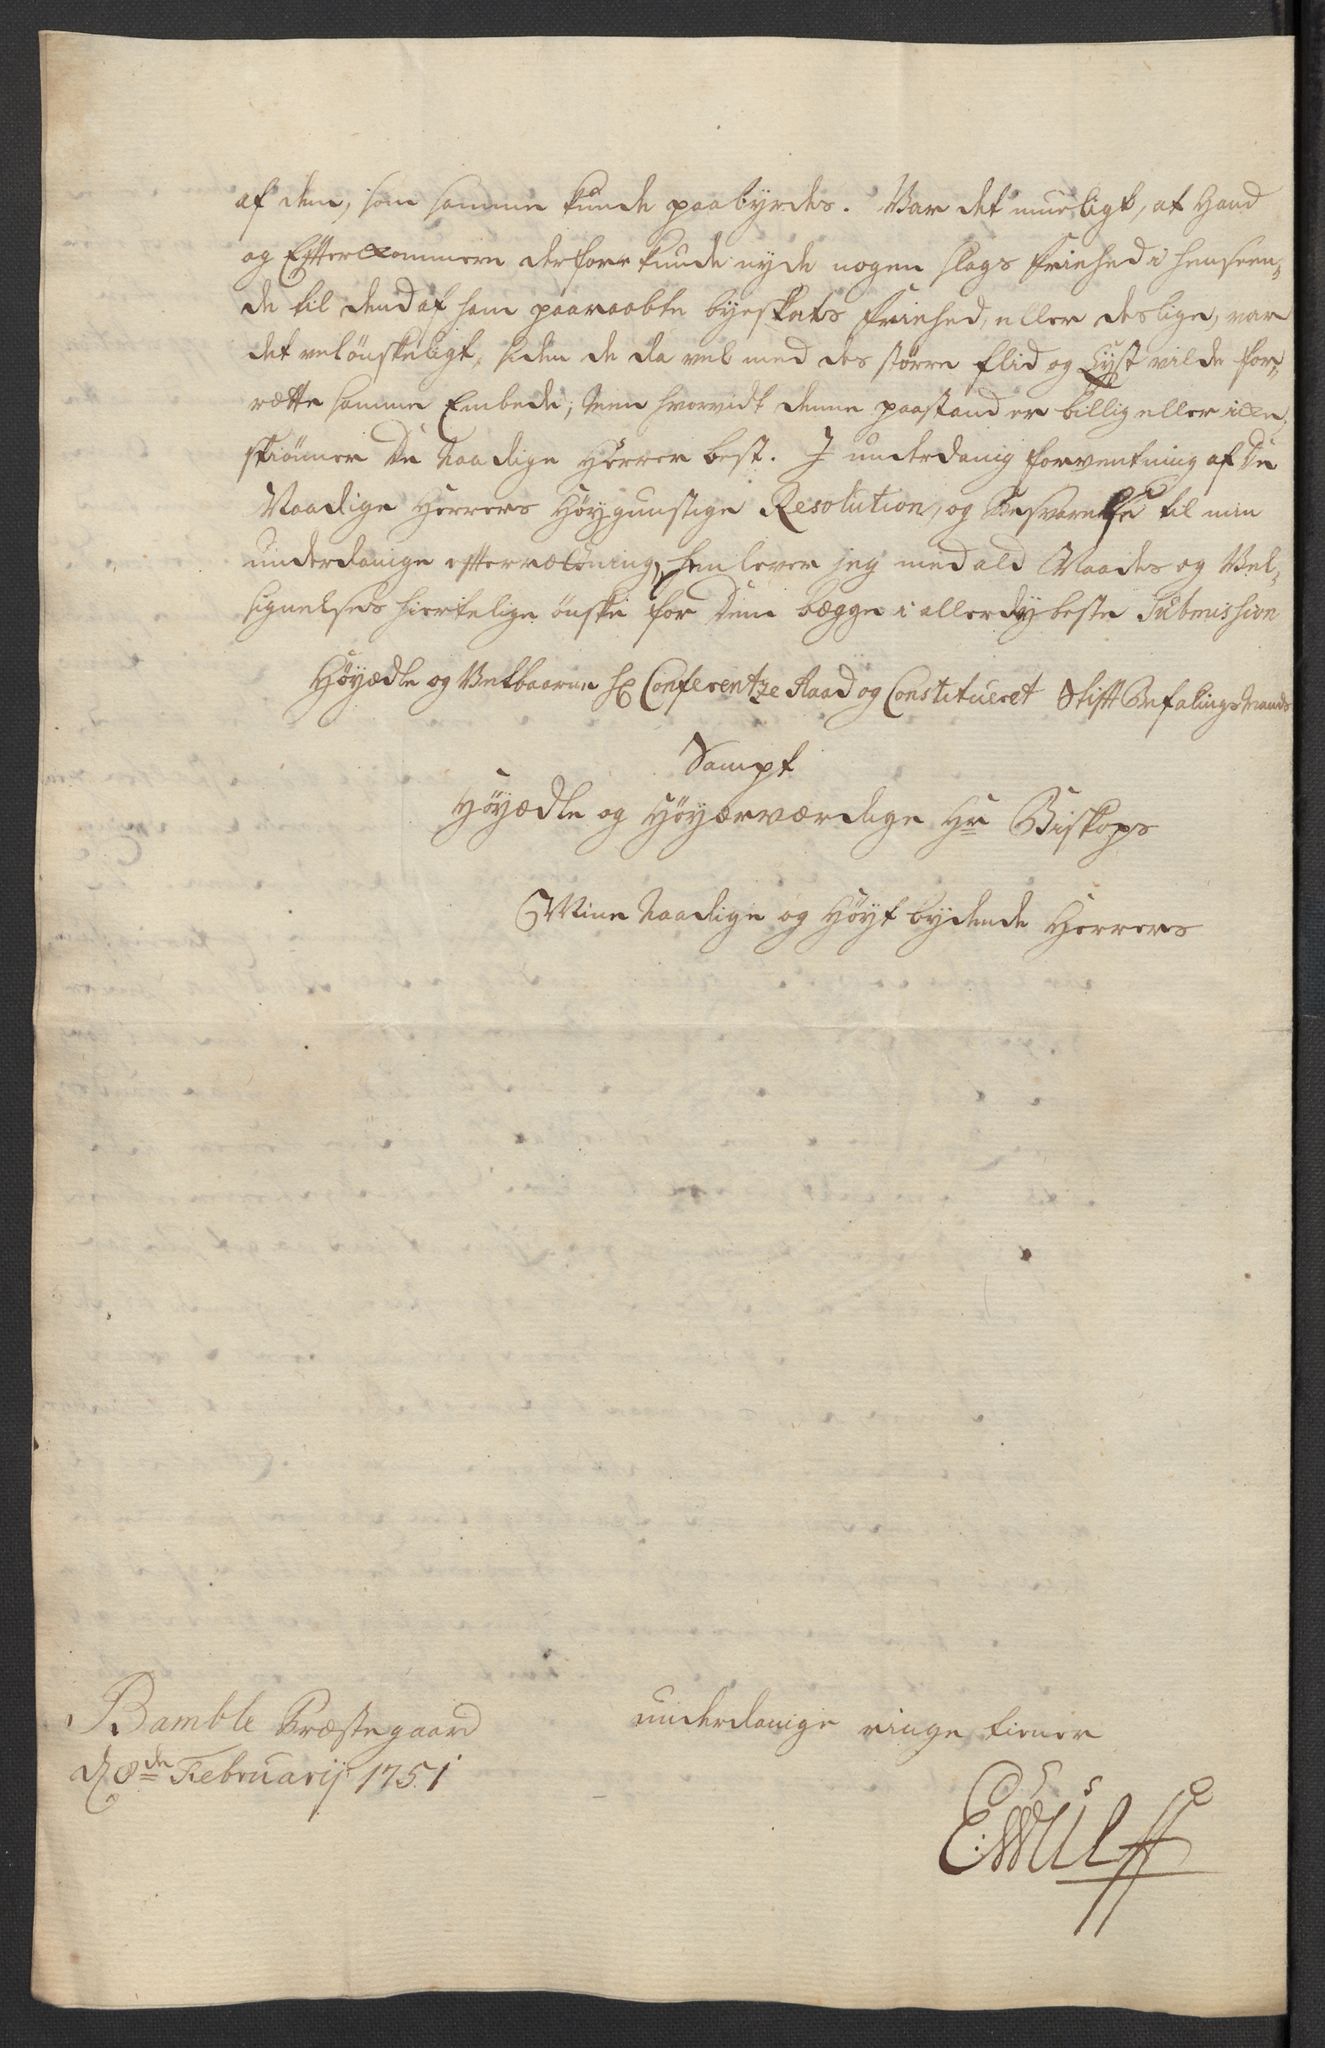 af dem, som samme kunde paabyrdes. Var det mueligt, at Hand
og Efterkommere derfore kunde nyde nogen slags friehed i henseen-
de til dend af ham paaraabte byeskats friehed, eller deslige, var
det vel ønskeligt, siden de da vel med des større flid og Lyst vilde for-
rætte samme Embede; Men hvorvidt denne paastand er billig eller ille
skiønner De Naadige Herrer best. I underdanig forventning af De
Naadige Herrers Høygunstige Resolution, og Besvarelse til min
underdanige efterrætning, henlever jeg med ald Naades og Vel-
signelses hiertelige ønske for Dem begge i allerdybeste Submission
Høyædle og Velbaarne Hr Conferentze Raad og Constitueret Stift Befalings Mands
Sampt
Høyædle og Høyærværdige Hr Biskops
Mine Naadige og Høyt bydende Herrers
Bamble Præstegaard
d 8de Februarij 1751
underdanige ringe tiener
E: Wulff